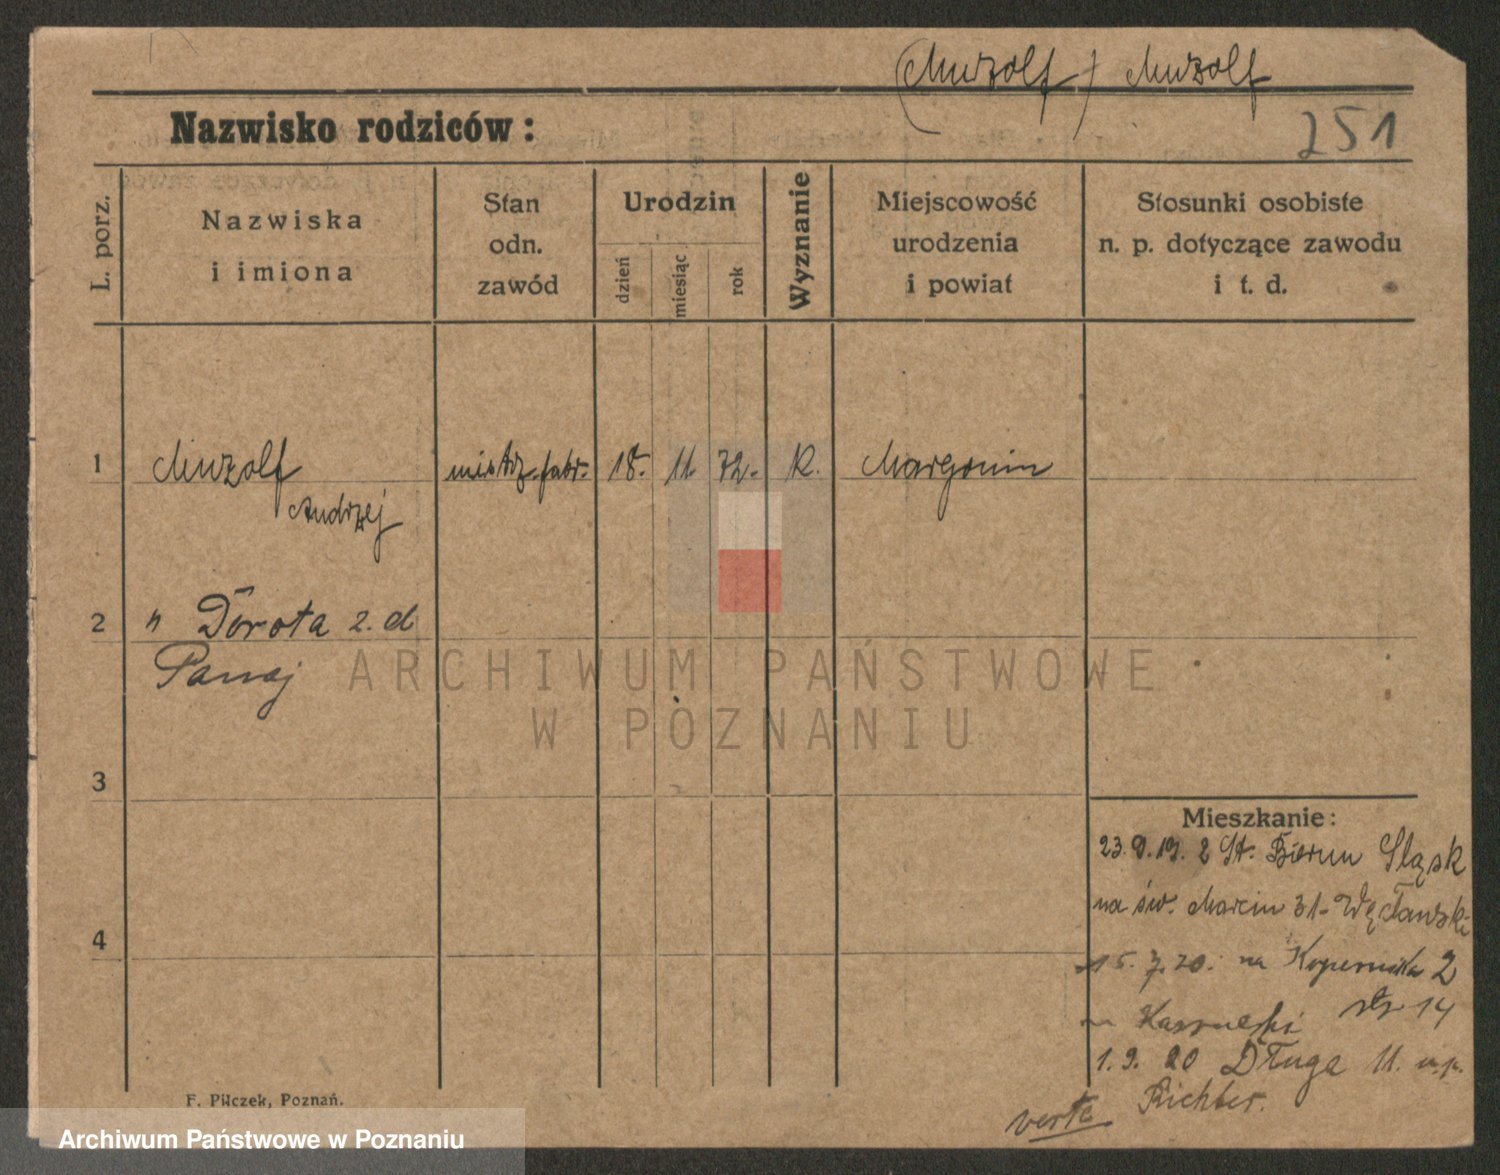 (Muzolf) Muzolf
Nazwisko rodziców:
251
L. porz.
Nazwiska
i imiona
Stan
odn.
zawód
Urodzin
dzień
miesiąc
rok
Wyznanie
Miejscowość
urodzenia
i powiat
Stosunki osobiste
n. p. dotyczące zawodu
i t. d.
1 Muzolf mistrz. fabr. 18. 11. 72. K. Margonin
Andrzej
2 " Dorota z. d
ARCHIWUM PAŃSTWOWE
W POZNANIU
3
Mieszkanie:
23.9.19. z St. Bierun Śląsk
na św. Marcin 31 -
4
15. 7. 20. na Kopernika 2
14
1. 9. 20 Długa 11.
Richter.
verte
F. Pilczek, Poznań.
Archiwum Państwowe w Poznaniu